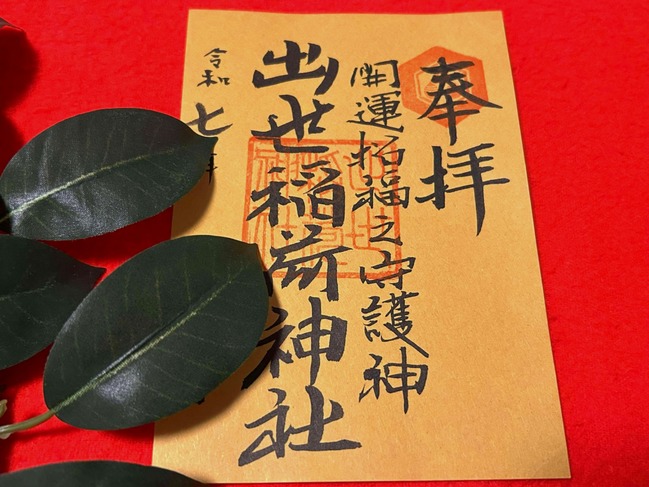 奉拝
開運招福之守護神
出世稲荷神社
令和七年